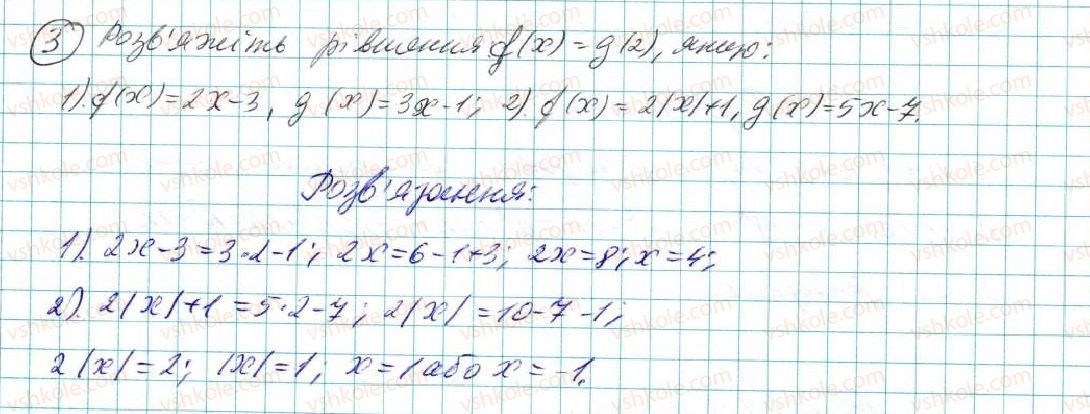 3 Розв'яжіть рівняння f(x) = g(2), якщо:
1). f(x)=2x-3, g(x)=3x-1; 2). f(x)=2|x|+1, g(x)=5x-7.
Розв'язання:
1). 2x-3=3·2-1; 2x=6-1+3; 2x=8; x=4;
2). 2|x|+1=5·2-7; 2|x|=10-7-1;
2|x|=2; |x|=1; x=1 або x=-1.